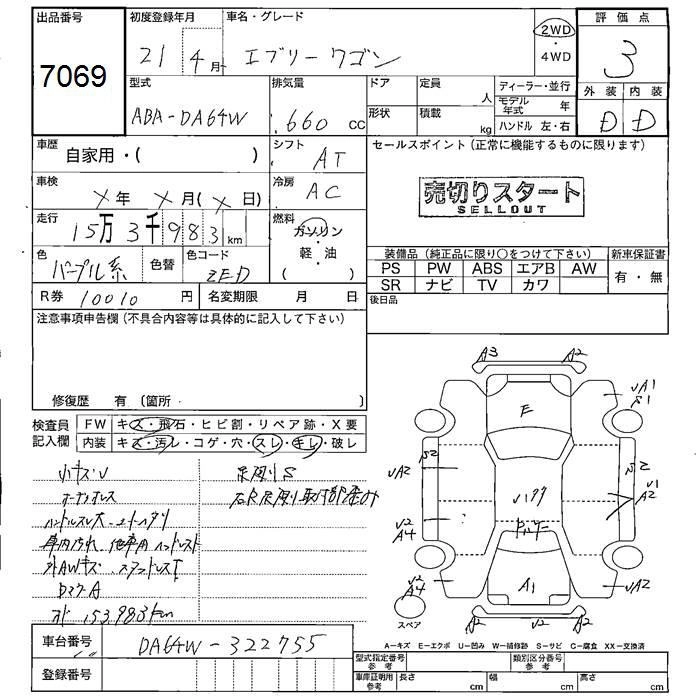 出品番号
7069
初度登録年月
21 4月
車名・グレード
エブリーワゴン
2WD
・
4WD
評価点
3
外装 内装
D D
型式
ABA-DA64W
排気量
660 cc
ドア
形状
定員 人
積載 kg
ディーラー・並行
モデル年式 年
ハンドル 左・右
車歴
自家用・( )
シフト
AT
セールスポイント (正常に機能するものに限ります)
売切りスタート
SELLOUT
車検
×年 ×月(×日)
冷房
AC
走行
15万3千983km
燃料
ガソリン
・
軽・油
色
パープル系
色替
色コード
ZED
装備品 (純正品に限り○をつけて下さい)
新車保証書
PS PW ABS エアB AW
SR ナビ TV カワ
有・無
R券 10010 円
名変期限 月 日
後日品
注意事項申告欄 (不具合内容等は具体的に記入して下さい)
修復歴 有 (箇所 )
検査員記入欄
FW キズ・飛石・ヒビ割・リペア跡・X要
内装 キズ・汚レ・コゲ・穴・スレ・キレ・破レ
小キズU
足廻りS
ハンドルスレ大
車内汚れ
外AWキズ
153,983km
A3 A2
UA1
S1
E
S2
S2
UA2
U1
A2
U2
A4
U2
A4
A1
UA2
A2 U2 A2
スペア
車台番号
DA64W-322755
登録番号
A-キズ E-エクボ U-凹み W-補修跡 S-サビ C-腐食 XX-交換済
型式指定番号 参考
類別区分番号 参考
車庫証明用 参考
長さ cm
幅 cm
高さ cm